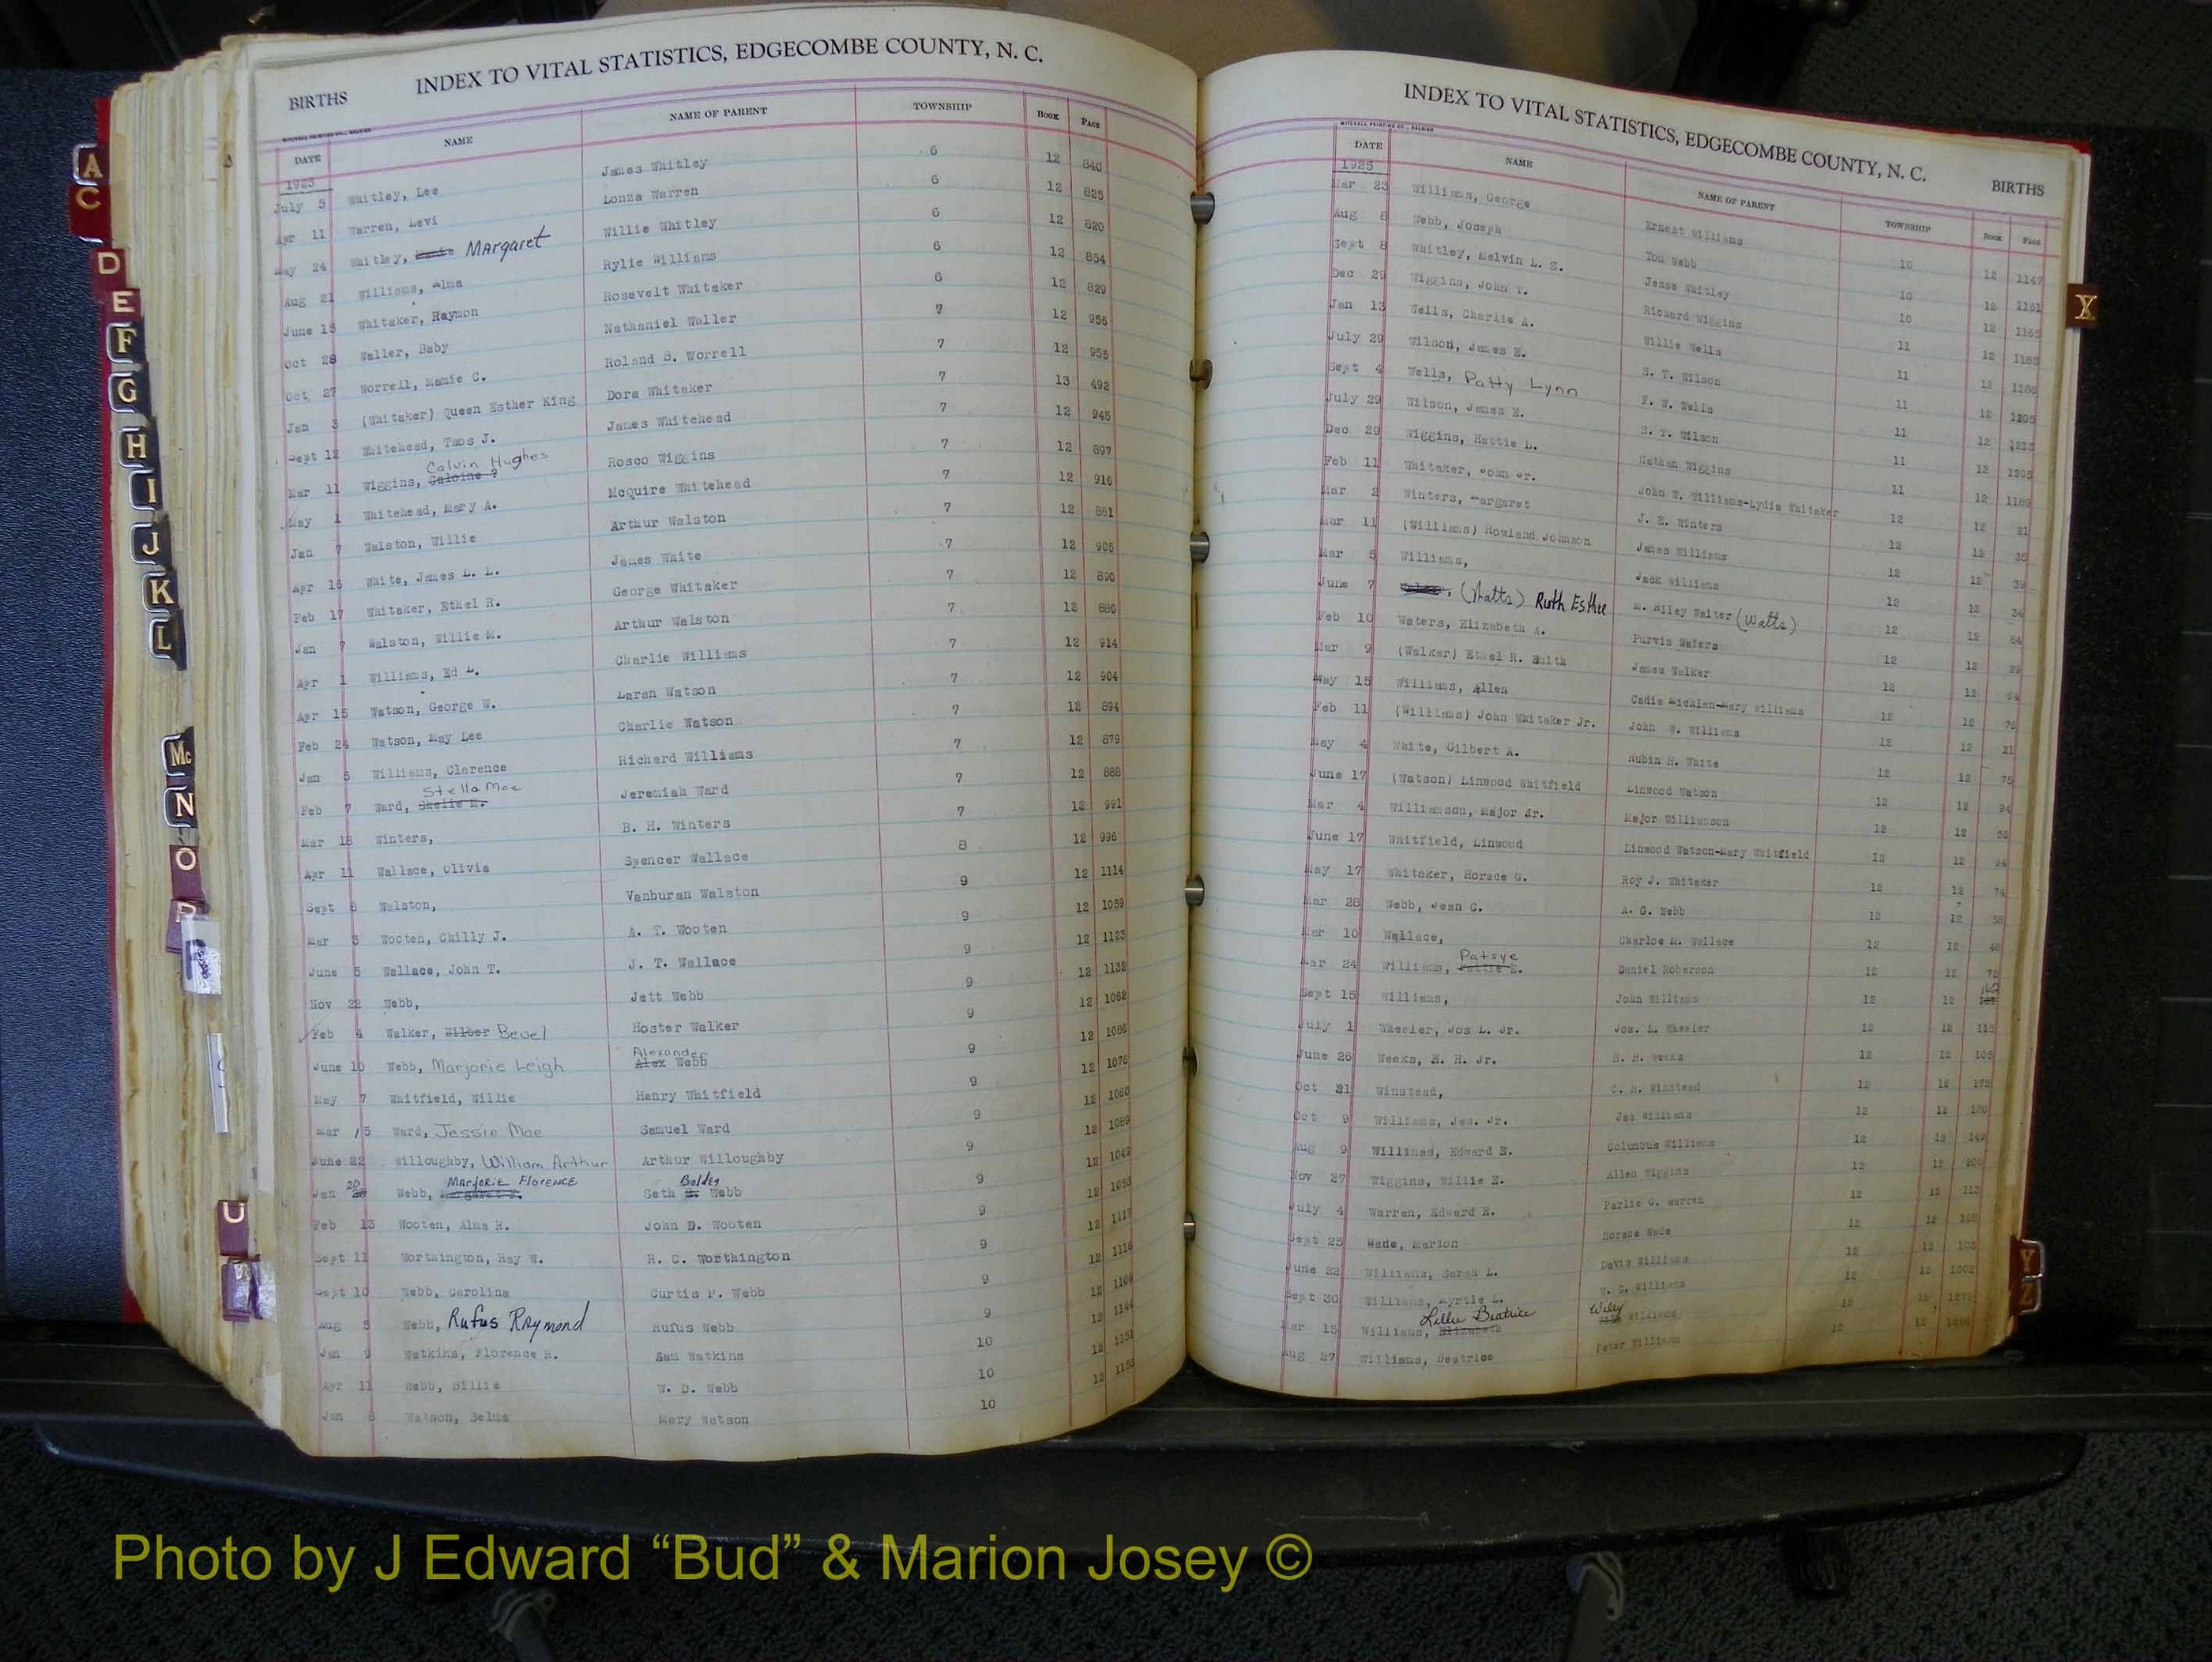 INDEX TO VITAL STATISTICS, EDGECOMBE COUNTY, N. C.
BIRTHS
DATE NAME NAME OF PARENT TOWNSHIP BOOK PAGE
1925
July 5 Whitley, Lee James Whitley 6 12 840
Apr 11 Warren, Levi Lonza Warren 6 12 825
May 24 Whitley, Margaret Willie Whitley 6 12 820
Aug 21 Williams, Alma Rylie Williams 6 12 854
June 15 Whitaker, Raymon Rosevelt Whitaker 6 12 829
Oct 28 Waller, Baby Nathaniel Waller 7 12 956
Oct 27 Worrell, Mamie C. Roland B. Worrell 7 12 955
Jan 3 (Whitaker) Queen Esther King Dora Whitaker 7 13 492
Sept 12 Whitehead, Thos J. James Whitehead 7 12 945
Mar 11 Wiggins, Calvin Hughes Rosco Wiggins 7 12 897
May 1 Whitehead, Mary A. McQuire Whitehead 7 12 916
Jan 7 Walston, Willie Arthur Walston 7 12 881
Apr 16 White, James L. L. James White 7 12 905
Feb 17 Whitaker, Ethel R. George Whitaker 7 12 890
Jan 7 Walston, Willie M. Arthur Walston 7 12 880
Apr 1 Williams, Ed L. Charlie Williams 7 12 914
Apr 15 Watson, George W. Laran Watson 7 12 904
Feb 24 Watson, May Lee Charlie Watson 7 12 894
Jan 5 Williams, Clarence Richard Williams 7 12 879
Feb 7 Ward, Stella Mae Jeremiah Ward 7 12 888
Mar 18 Winters, B. H. Winters 7 12 991
Apr 11 Wallace, Olivia Spencer Wallace 8 12 996
Sept 8 Walston, Vanburan Walston 9 12 1114
Mar 3 Wooten, Chilly J. A. T. Wooten 9 12 1059
June 5 Wallace, John T. J. T. Wallace 9 12 1123
Nov 22 Webb, Jett Webb 9 12 1132
Feb 4 Walker, Wilber Bevel Hoster Walker 9 12 1062
June 10 Webb, Marjorie Leigh Alexander Alex Webb 9 12 1086
May 7 Whitfield, Willie Henry Whitfield 9 12 1076
Mar 15 Ward, Jessie Mae Samuel Ward 9 12 1060
June 22 Willoughby, William Arthur Arthur Willoughby 9 12 1089
Jan 20 Webb, Marjorie Florence Seth Webb 9 12 1042
Feb 13 Wooten, Alma R. John D. Wooten 9 12 1053
Sept 11 Worthington, Ray W. R. C. Worthington 9 12
Sept 10 Webb, Carolina Curtis P. Webb 9 12 1116
Aug 5 Webb, Rufus Raymond Rufus Webb 9 12 1106
Jan 9 Watkins, Florence R. Sam Watkins 10 12 1144
Apr 11 Webb, Billie W. D. Webb 10 12 1151
Jan 8 Watson, Selma Mary Watson 10 12 1156
INDEX TO VITAL STATISTICS, EDGECOMBE COUNTY, N. C.
BIRTHS
DATE NAME NAME OF PARENT TOWNSHIP BOOK PAGE
1925
Mar 23 Williams, George Ernest Williams 10 12 1147
Aug 8 Webb, Joseph Tom Webb 10 12 1161
Sept 8 Whitley, Melvin L. S. Jesse Whitley 10 12 1165
Dec 29 Wiggins, John T. Richard Wiggins 11 12
Jan 13 Wells, Charlie A. Willie Wells 11 12
July 29 Wilson, James E. S. T. Wilson 11 12 1205
Sept 4 Wells, Patty Lynn F. W. Wells 11 12 1213
July 29 Wilson, James E. S. T. Wilson 11 12 1205
Dec 29 Wiggins, Hattie L. Nathan Wiggins 11 12 1189
Feb 11 Whitaker, John Jr. John W. Williams-Lydia Whitaker 12 12 21
Mar 2 Winters, Margaret J. E. Winters 12 12 35
Mar 11 (Williams) Rowland Johnson James Williams 12 12 39
Mar 5 Williams, Jack Williams 12 12
June 7 (Watts) Ruth Esther M. Riley Walter (Watts) 12 12
Feb 10 Waters, Elizabeth A. Purvis Waters 12 12
Mar 9 (Walker) Ethel R. Smith James Walker 12 12
May 15 Williams, Allen Cadie Michlen-Mary Williams 12 12 76
Feb 11 (Williams) John Whitaker Jr. John W. Williams 12 12 21
May 4 White, Gilbert A. Rubin H. White 12 12 75
June 17 (Watson) Linwood Whitfield Linwood Watson 12 12 94
Mar 4 Williamson, Major Jr. Major Williamson 12 12
June 17 Whitfield, Linwood Linwood Watson-Mary Whitfield 12 12 94
May 17 Whitaker, Horace G. Roy J. Whitaker 12 12 74
Mar 28 Webb, Jean C. A. G. Webb 12 12 58
Mar 10 Wallace, Charloe M. Wallace 12 12
Mar 24 Williams, Patsye Daniel Roberson 12 12
Sept 15 Williams, John Williams 12 12
July 1 Wheeler, Jos L. Jr. Jos. L. Wheeler 12 12 115
June 26 Weeks, H. H. Jr. H. H. Weeks 12 12 105
Oct 21 Winstead, C. H. Winstead 12 12 175
Oct 9 Williams, Jas. Jr. Jas Williams 12 12
Aug 9 Williams, Edward E. Columbus Williams 12 12 149
Nov 27 Wiggins, Willie E. Allen Wiggins 12 12
July 4 Warren, Edward E. Parlie G. Warren 12 12
Sept 25 Wade, Marion Horace Wade 12 12
June 22 Williams, Sarah L. Davis Williams 12 12
Sept 30 Williams, Myrtle L. W. G. Williams 12 12
Mar 15 Williams, Lillie Beatrice Wiley Williams
Aug 27 Williams, Beatrice Peter Williams
A
C
D
E
F
G
H
I
J
K
L
Mc
N
O
P
U
W
X
Y
Z
Photo by J Edward “Bud” & Marion Josey ©